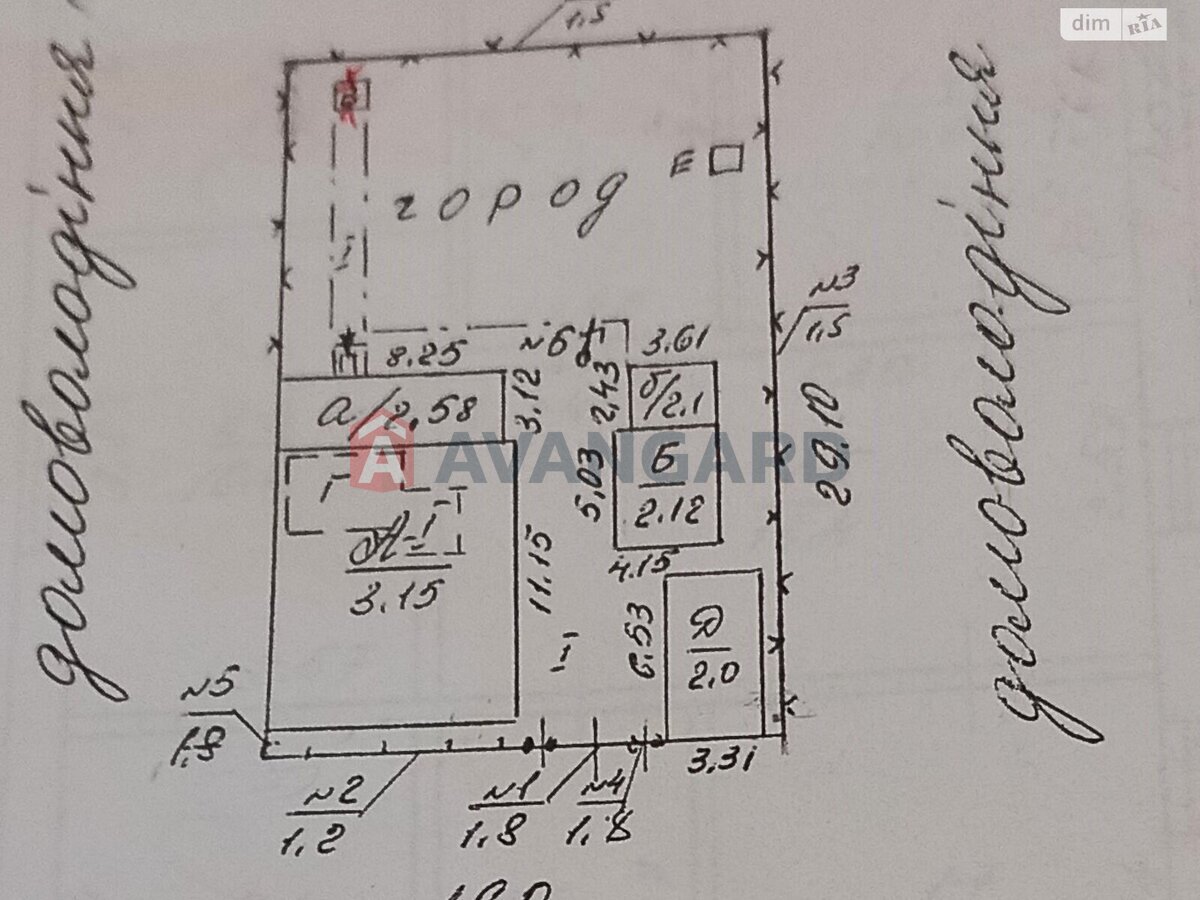 dim RIA
1,5
домоволодіння
домоволодіння
Е
город
I
№3
1,5
8.25
№6
3.61
а/2,58
3,12
2,43
б/2.1
29.10
AVANGARD
5,03
Б
2.12
А-I
3.15
11.15
4.15
I
6,53
Д
2,0
№5
1,8
3,31
№2
1,2
№1
1,8
№4
1,8